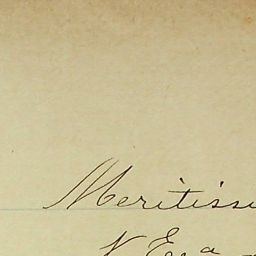 Meritissi
V Exª